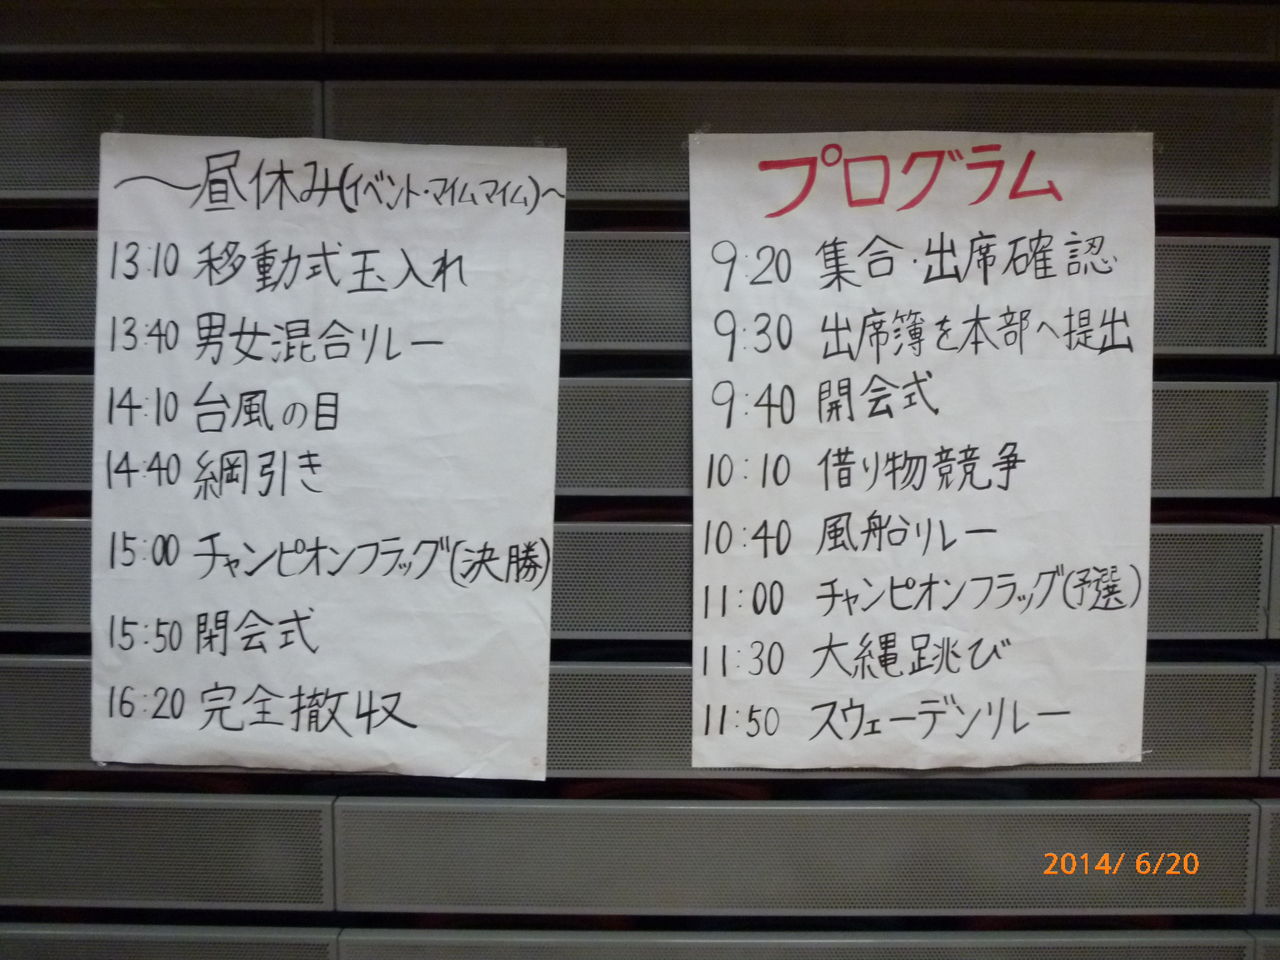 プログラム
9:20 集合・出席確認
9:30 出席簿を本部へ提出
9:40 開会式
10:10 借り物競争
10:40 風船リレー
11:00 チャンピオンフラッグ(予選)
11:30 大縄跳び
11:50 スウェーデンリレー
〜昼休み(イベント・マイムマイム)〜
13:10 移動式玉入れ
13:40 男女混合リレー
14:10 台風の目
14:40 綱引き
15:00 チャンピオンフラッグ(決勝)
15:50 閉会式
16:20 完全撤収
2014/ 6/20